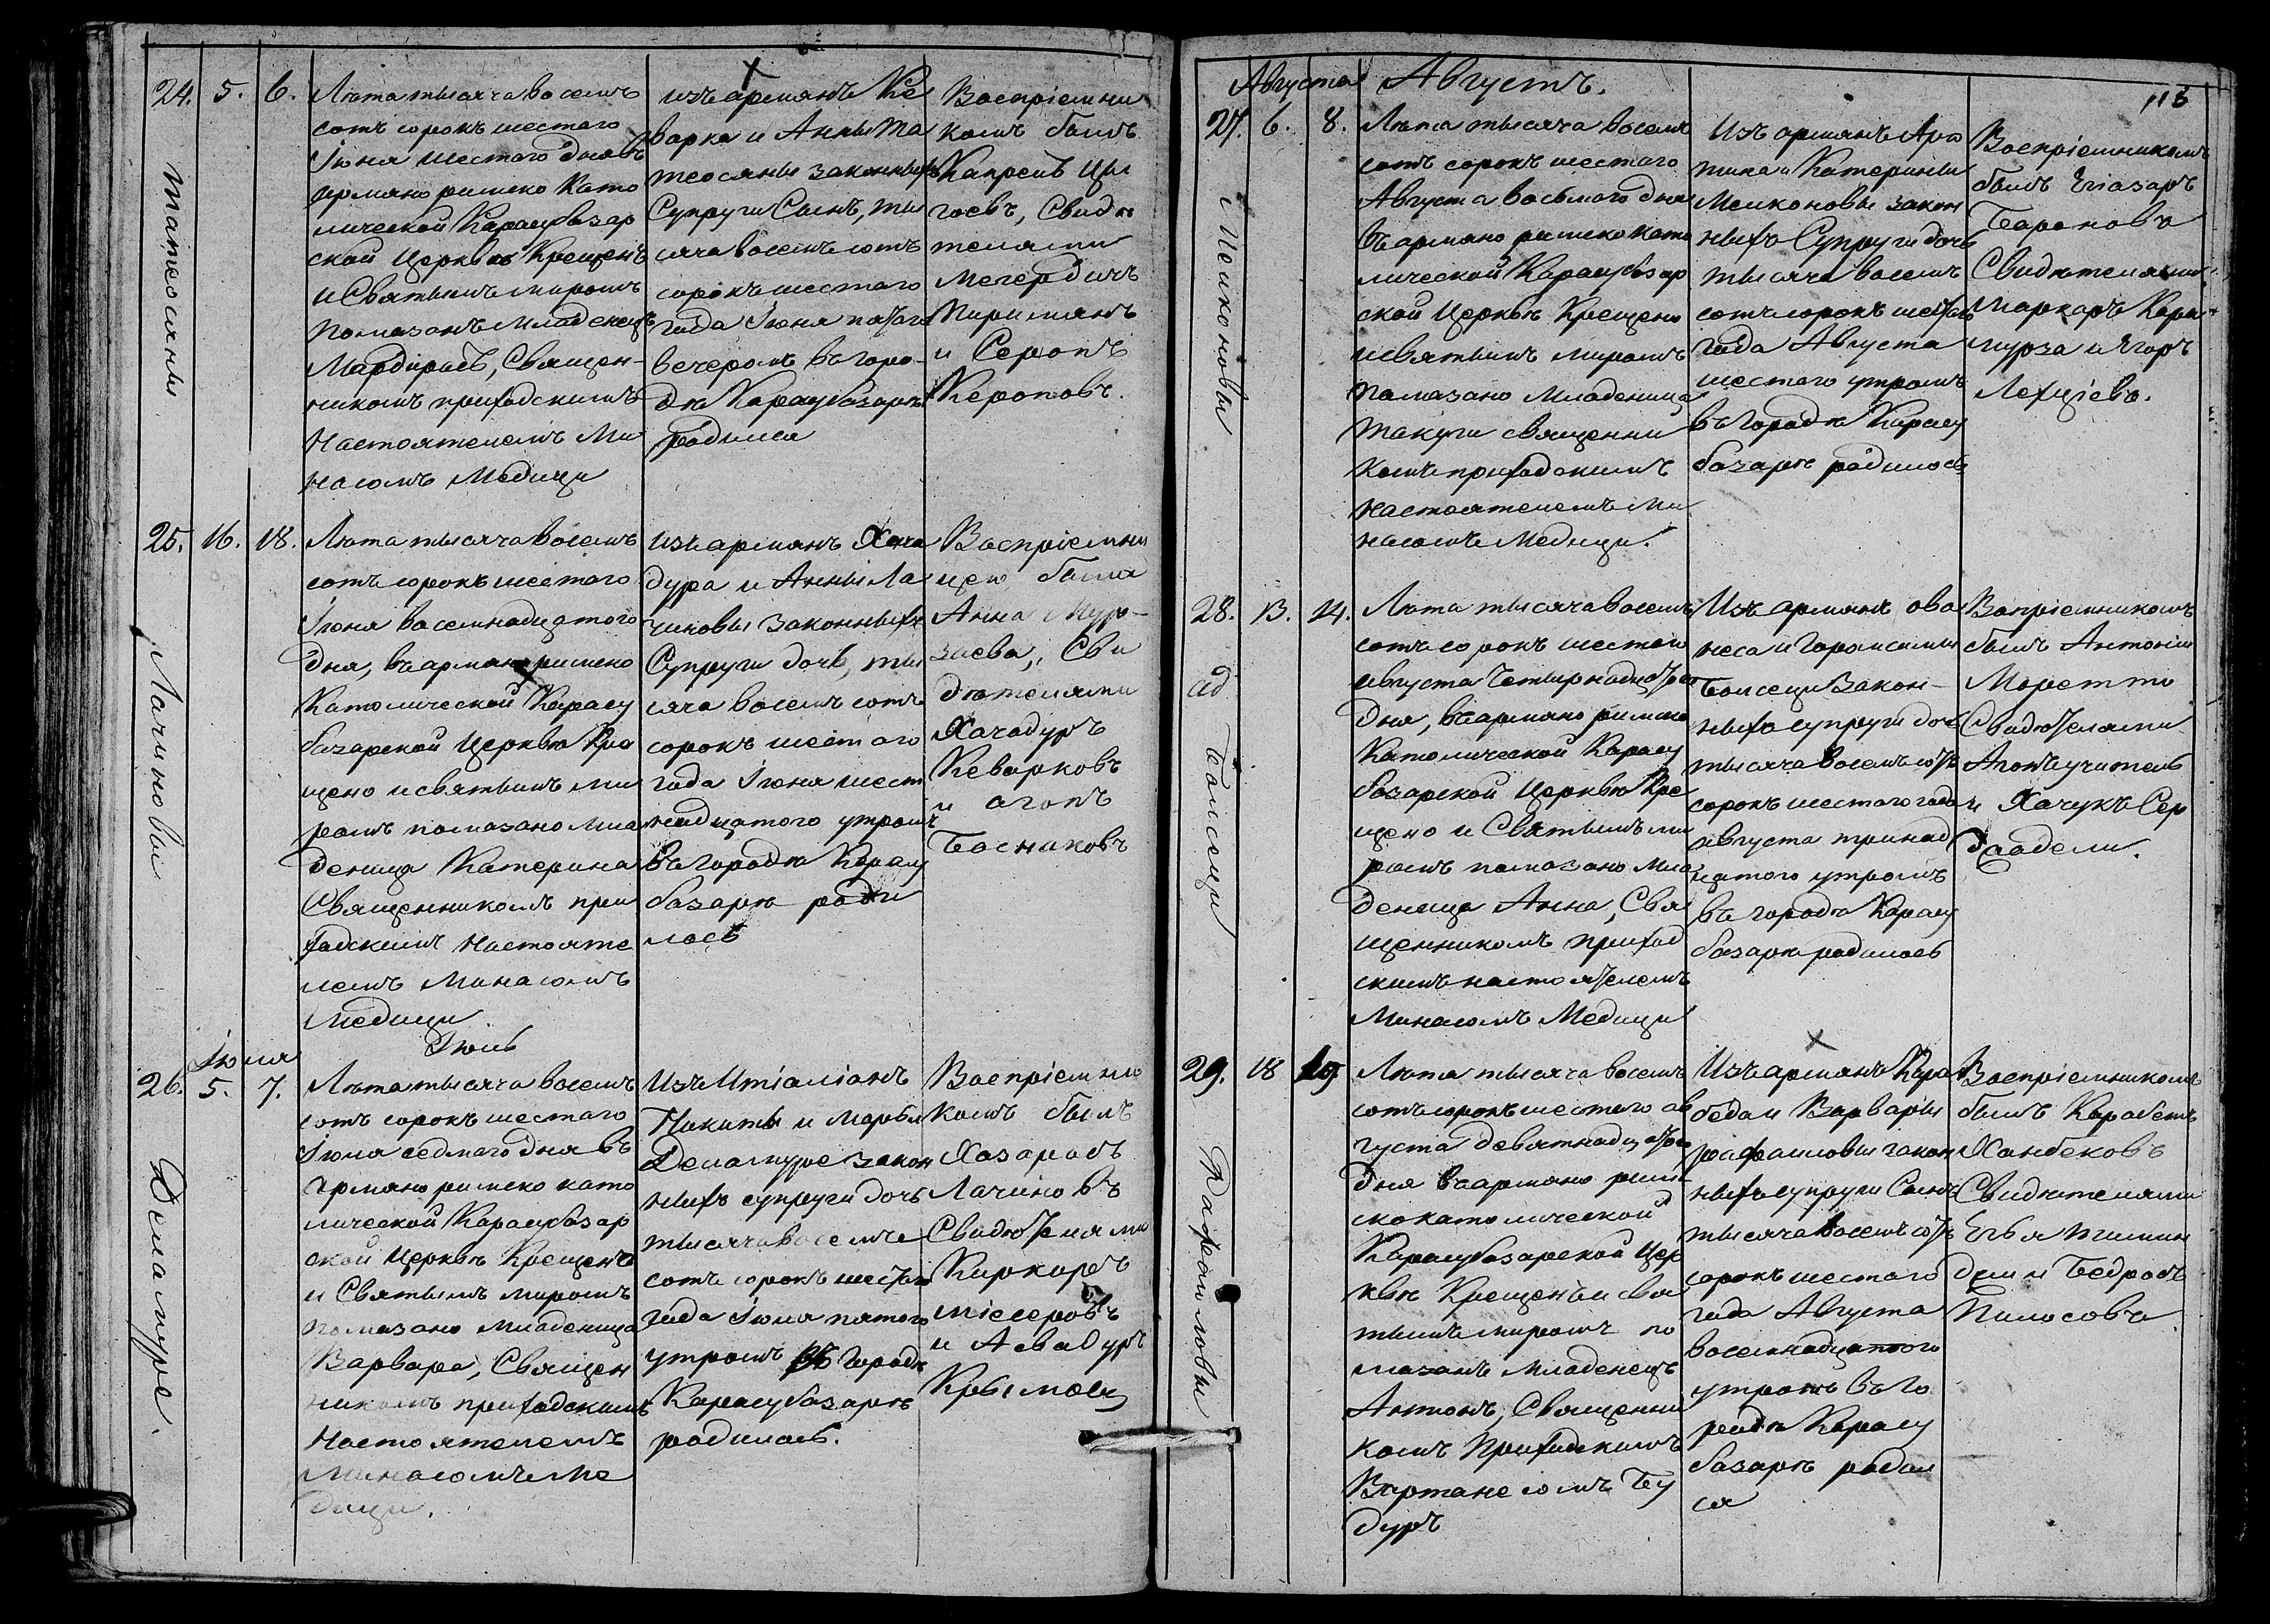 24. 5. 6.
Татеосяны
Лѣта тысяча восемь
сотъ сорокъ шестого
Іюня шестого дня въ
армяно римско Като
лической Карасубазар
ской Церквѣ Крещенъ
и Святымъ миромъ
помазанъ Младенецъ
Мардиросъ, Священ-
никомъ приходскимъ
Настоятелемъ Ми
насомъ Медици
изъ армянъ Ке
ворка и Анны Та
теосяны законныхъ
Супруги Сынъ, ты
сяча восемь сотъ
сорокъ шестого
года Іюня пятого
вечеромъ въ горо-
дѣ Карасубазарѣ
родился
Воспріемни
комъ былъ
Капрелъ Цы
гоевъ, Свидѣ
телями
Мегердичъ
Пиримянъ
и Серопъ
Кероповъ.
25. 16. 18.
Лачиновы
Лѣта тысяча восемь
сотъ сорокъ шестого
Іюня восемнадцатого
дня, въ армяно римско
Католической Карасу
базарской Церквѣ Кре
щено и святымъ ми
ромъ помазано мла
деница Катерина
Священникомъ при
ходскимъ Настояте
лемъ Минасомъ
Медици.
Изъ армянъ Хача
дура и Анны Ла
чиновы законныхъ
Супруги дочь, ты
сяча восемь сотъ
сорокъ шестого
года Іюня шест
надцатого утромъ
въ городѣ Карасу
базарѣ роди
лось
Воспріемни
цею была
Анна Мур-
заева, Сви
дѣтелями
Хачадуръ
Кеворковъ
и агопъ
Босняковъ
Іюля
Іюль
26. 5. 7.
Деламуре.
Лѣта тысяча восемь
сотъ сорокъ шестого
Іюля седмаго дня въ
армяно римско като
лической Карасубазар
ской Церквѣ Крещено
и Святымъ миромъ
помазано младеница
Варвара, Священ
никомъ приходскимъ
Настоятелемъ
Минасомъ Ме
дици.
Изъ Итіаліанъ
Никиты и Марьи
Деламуре закон
ныхъ супруги дочь
тысяча восемь
сотъ сорокъ шестого
года Іюля пятого
утромъ въ городѣ
Карасубазарѣ
родилась.
Воспріемни
комъ былъ
Хазаросъ
Лачиновъ
Свидѣтелями
Киркоръ
місеровъ
и Асвадуръ
116
Августа
Августъ.
27. 6. 8.
Мелконовы
Лѣта тысяча восемь
сотъ сорокъ шестого
Августа восьмого дня
въ армяно римско като
лической Карасубазар
ской Церквѣ Крещено
и святымъ миромъ
помазано младеница
Такуги священни
комъ приходскимъ
настоятелемъ Ми
насомъ Медици.
Изъ армянъ Ару
тина и Катерины
Мелконовы закон
ныхъ Супруги дочь
тысяча восемь
сотъ сорокъ шестого
года Августа
шестого утромъ
въ городѣ Карасу
базарѣ родилось
Воспріемникомъ
былъ Еліазаръ
Бароновъ
Свидѣтелями
Маркаръ Кара
мурза и Егоръ
Лехціевъ.
28. 13. 14.
Болсеци
Лѣта тысяча восемь
сотъ сорокъ шестого
августа Четырнадцатого
дня, въ армяно римско
Католической Карасу
базарской Церквѣ Кре
щено и Святымъ ми
ромъ помазано мла
деница Анна, Свя
щенникомъ приход
скимъ настоятелемъ
Минасомъ Медици
Изъ армянъ ова
неса и Горомсимы
Болсеци Закон-
ныхъ супруги дочь
тысяча восемь сотъ
сорокъ шестого года
августа тринад
цатого утромъ
въ городѣ Карасу
базарѣ родилось
Вопріемникомъ
былъ Антоніи
Моретто
Свидѣтелями
Агопъ учитель
и Хачукъ Сер
29. 18 19
Рафаиловы
Лѣта тысяча восемь
сотъ сорокъ шестого ав
густа девятнадцатого
дня въ армяно рим
ско католической
Карасубазарской Цер
квѣ Крещенъ и свя
тымъ миромъ по
мазанъ младенецъ
Антонъ, Священни
комъ Приходскимъ
Вартанесомъ Бу
дуръ
Изъ армянъ Кара
беда и Варвары
рафаиловы закон
ныхъ супруги Сынъ
тысяча восемь сотъ
сорокъ шестого
года Августа
восемнадцатого
утромъ въ го
родѣ Карасу
базарѣ родил
ся
Воспріемникомъ
былъ Карабетъ
Ханбековъ
Свидѣтелями
дели Бедросъ
Пилосовъ